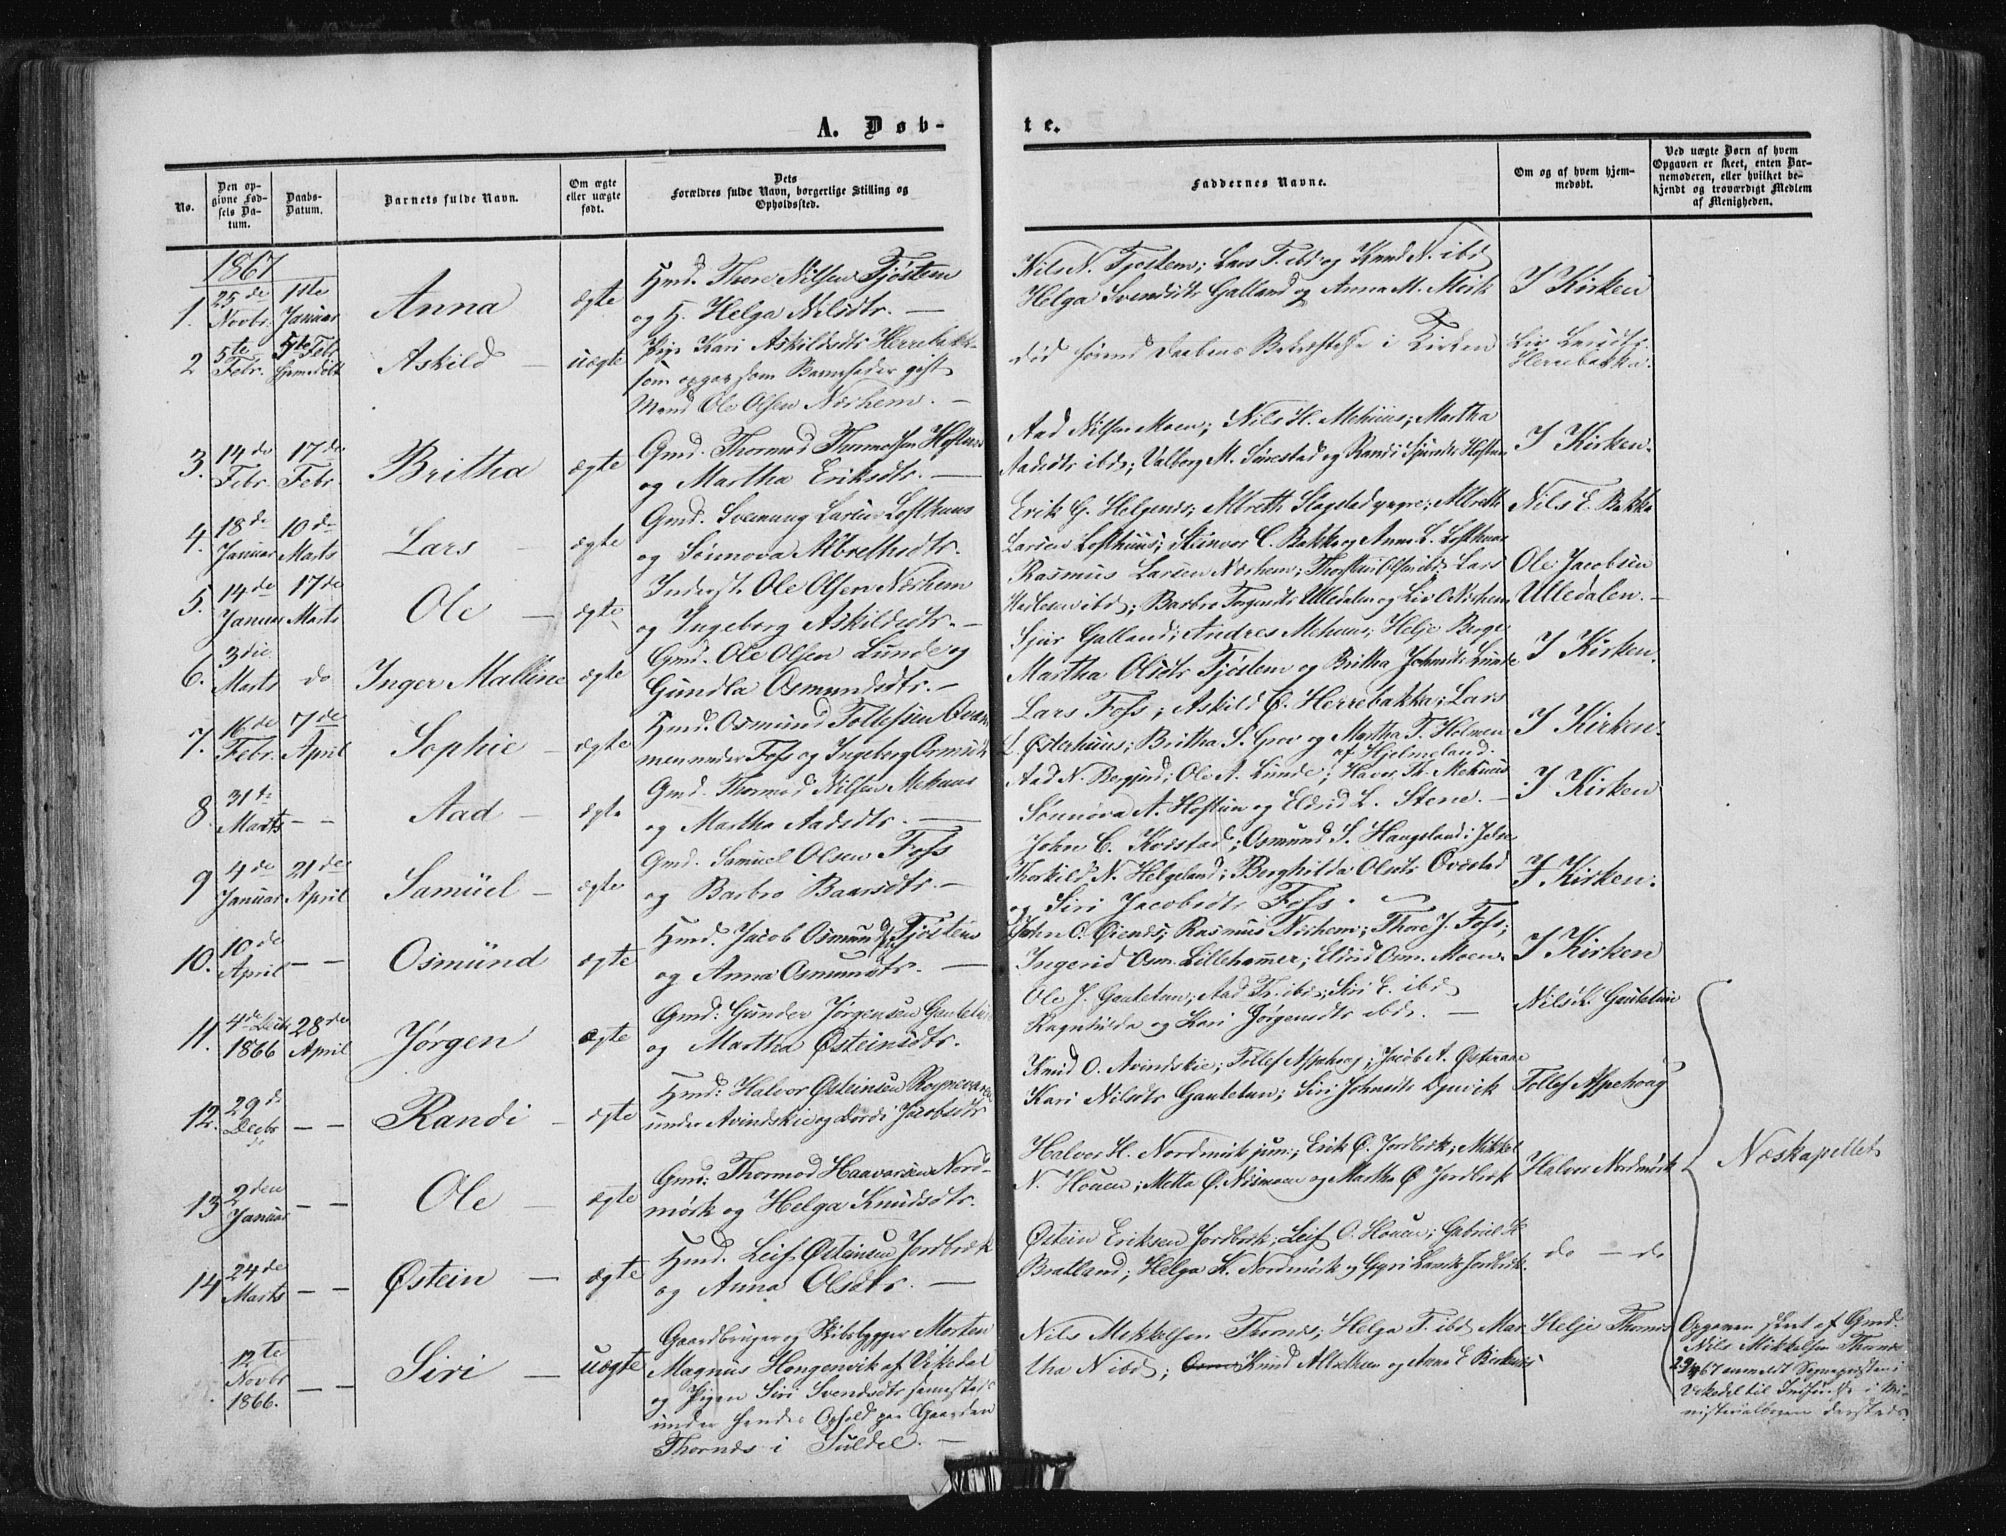 A. Døb-
te.
No.
Den op-
givne Fød-
sels Da-
tum.
Daabs-
Datum.
Barnets fulde Navn.
Om ægte
eller uægte
født.
Dets
Forældres fulde Navn, borgerlige Stilling og
Opholdssted.
Faddernes Navne.
Om og af hvem hjem-
medøbt.
Ved uægte Børn af hvem
Opgaven er skeet, enten Bar-
nemoderen, eller hvilket be-
kjendt og troværdigt Medlem
af Menigheden.
1867
1.
25de
Novbr.
11te
Januar
Anna
ægte
Hmd. Thore Nilsen Fjøstem
og H. Helga Nilsdtr. —
Nils N. Fjøstem; Lars T. ibd og Knud N. ibd
Helga Svendsdtr Galland og Anna M.
I Kirken
2
5te
Febr.
5te Febr
hjemdøbt
Askild —
uægte
Pige Kari Askildsdtr Herrebakka
som opgav som Barnefader gift
Mand Ole Olsen Nærhem. —
død førend Daabens Bekræftelse i Kirken
Liv Larsdtr.
Herrebakka.
3.
14de
Febr.
17de
Febr.
Britha
ægte
Gmd. Thormod Thormodsen Hoftun
og Martha Eriksdtr. —
Aad Nilsen Moen; Nils H. Mehuus; Martha
Aadsdtr ibd; Valborg M. Sørestad og Randi Hoftun
I Kirken.
4.
18de
Januar
10de
Marts
Lars —
ægte
Gmd. Svenung Larsen Lofthuus
og Sønnova Albrethsdtr.
Erik G. Helgenes; Albreth Slagstad yngre; Albreth
Larsen Lofthuus; Steinvor C. Bakka og Anna L. Lofthuus
Nils E. Bakka
5.
14de
Januar
17de
Marts
Ole —
ægte
Inderst Ole Olsen Nærhem
og Ingeborg Askildsdtr. —
Rasmus Larsen Nærhem; Lars
ibd; Barbro Ulledalen og Liv O. Nærhem
Ole Jacobsen
Ulledalen. —
6.
3die
Marts
do
Inger Malline
ægte
Gmd. Ole Olsen Lunde og
Gundla Osmundsdtr. —
Sjur Galland; Andres Mehuus; Helje Berge
Martha Olsdtr Fjøstem og Britha Johnsdtr Lunde
I Kirken.
7.
16de
Febr.
7de
April
Sophie —
ægte
Hmd. Osmund Tollefsen Qvam-
men under Foss og Ingeborg Ormsdtr
Lars Foss; Askild Ø. Herrebakka; Lars
L. Østerhuus; Britha S. Grov og Martha T. Holmen
af Hjelmeland.
I Kirken.
8
31te
Marts
— —
Aad —
ægte
Gmd. Thormod Nilsen Mehuus
og Martha Aadsdtr. —
Aad N. Bergjord; Ole A. Lunde; Haver Th. Mehuus
Sønnøva A. Hoftun og Eldrid L. Stene. —
I Kirken
9
4de
Januar
21de
April
Samüel —
ægte
Gmd. Samuel Olsen Foss
og Barbro Baarsdtr. —
John C. Kvæstad; Osmund S. Haugeland i Jelse
Thorkild N. Helgeland; Berghilda Olsdtr Qvæstad
og Siri Jacobsdtr Foss. —
I Kirken.
10.
10de
April
— —
Osmünd
ægte
Hmd. Jacob Osmundsen Fjøstem
og Anna Osmundsdtr. —
John O. Øienes; Rasmus Nærhem; Thore J. Foss;
Ingerid Osm. Lillehamer; Eldrid Osm. Moen.
I Kirken
11.
4de Decbr
1866
28de
April
Jørgen
ægte
Gmd: Gunder Jørgensen Gautetun
og Martha Østeinsdtr.
Ole J. Gautetun; Aad Tr. ibd; Siri E. ibd
Ragnhilda og Kari Jørgensdtr ibd. —
Nils K. Gautetun
12.
29de
Decbr
— —
Randi —
ægte
Hmd: Halvor Østeinsen
under Avindskie og Dordi Jacobsdtr
Knud O. Avindskie; Tollef Aspehoug; Jacob A.
Kari Nilsdtr Gautetun; Siri Johnsdtr Djuvik
Tollef Aspehoug
13
2den
Januar
— —
Ole —
ægte
Gmd: Thormod Haavarsen Nord-
mörk og Helga Knudsdtr.
Halvor H. Nordmörk jun.; Erik Ø. Jordbræk; Mikkel
N. Houen; Metta O. og Martha Ø Jordbræk
Halvor Nordmörk
Næskapellet
14
24de
Marts
— —
Østein —
ægte
Hmd. Leif Østeinsen Jordbræk
og Anna Olsdtr. —
Østein Eriksen Jordbræk; Leif O. Houen; Gabriel H
Bratland; Helga K. Nordmörk og Gyri Jordbræk.
do — do
12te
Novbr
1866.
— —
Siri —
uægte
Gaardbruger og Skibsbygger Morten
Magnus Hongenvik af Vikedal
og Pigen Siri Svendsdtr
under hendes Ophold paa Gaarden
Thornæs i Suldal. —
Nils Mikkelsen Thornæs; Helga T. ibd Mar-
tha N ibd; Knud og Anna E
Helje Thornæs
Opgaven skeet af Gmd.
Nils Mikkelsen Thornæs
67 anmeldt Sognepræsten i
Vikedal til Indførelse i Mi-
nisterialbogen dersteds.